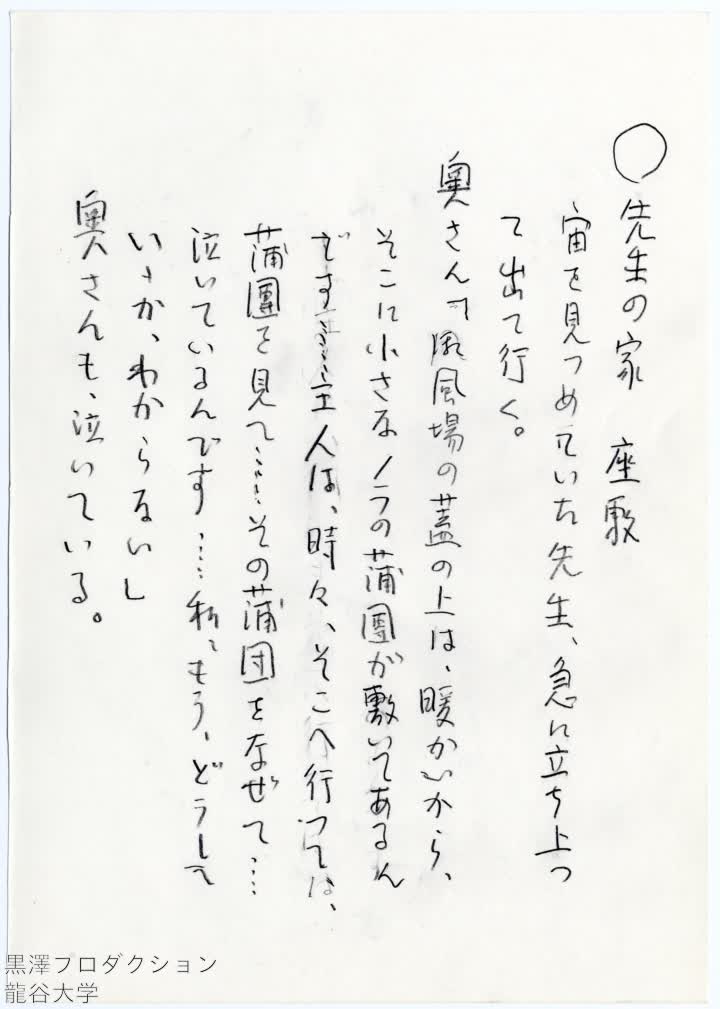 ○先生の家 座敷
宙を見つめていた先生、急に立ち上っ
て出て行く。
奥さん「風呂場の蓋の上は、暖かいから、
そこに小さなノラの蒲團が敷いてあるん
です……主人は、時々、そこへ行っては、
蒲團を見て……その蒲団をなぜて……
泣いているんです……私、もう、どうして
いゝか、わからない」
奥さんも、泣いている。
黒澤プロダクション
龍谷大学